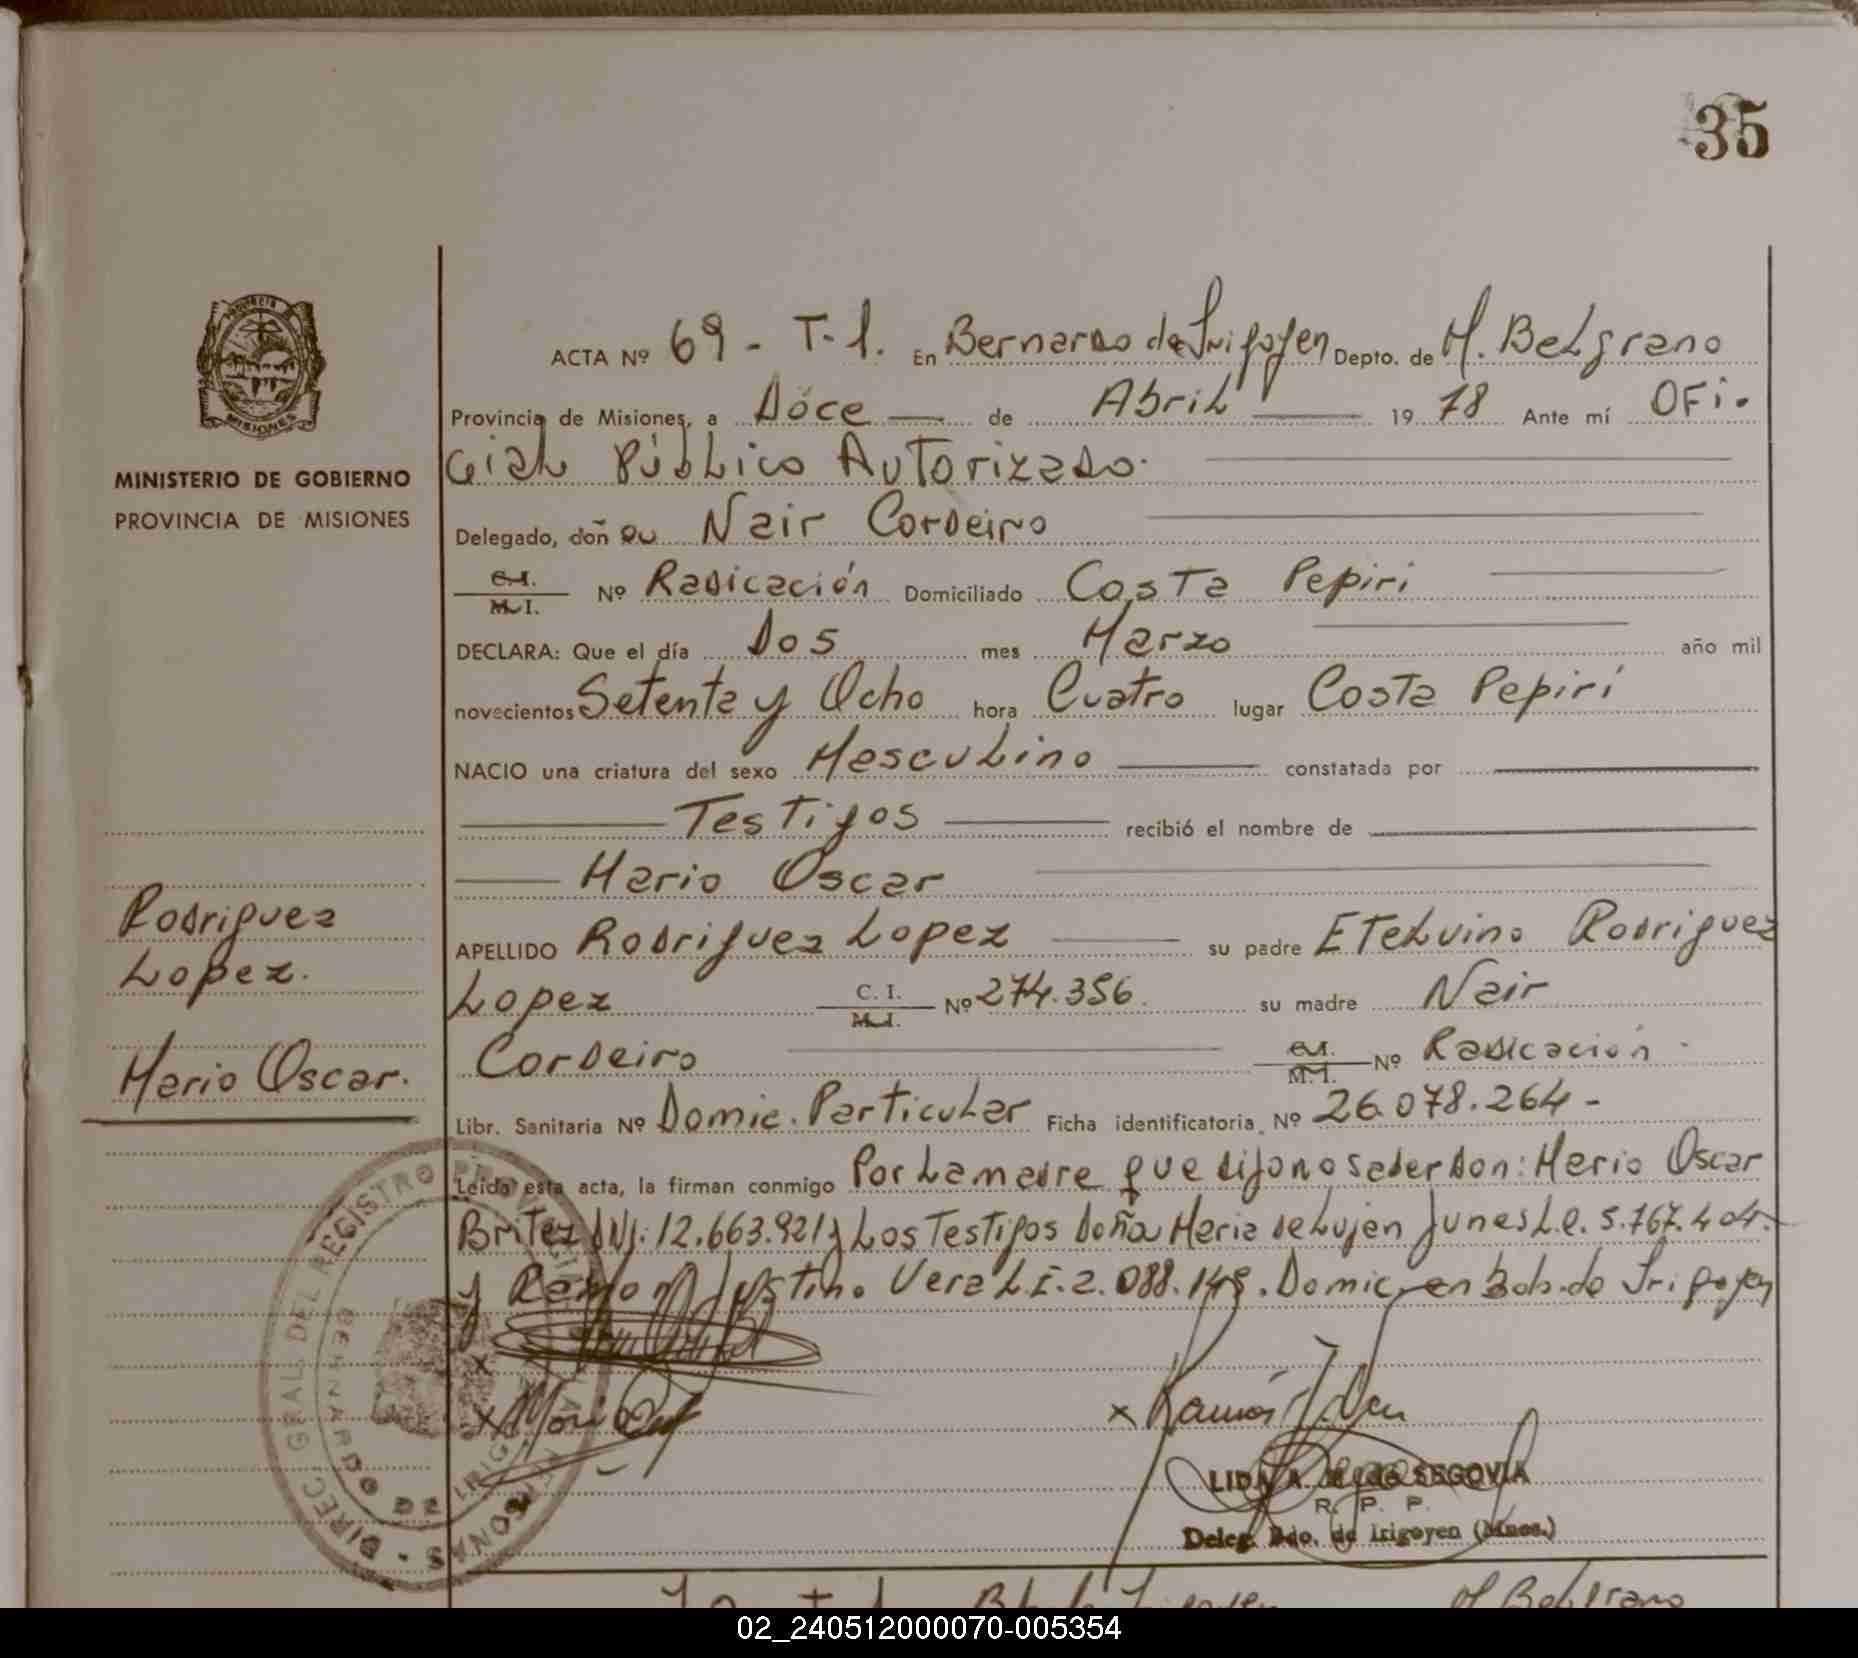 35
ACTA Nº 69 - T-1. En Bernardo de Irigoyen Depto. de M. Belgrano
Provincia de Misiones, a Dóce de Abril 1978 Ante mí OFi-
cial Público Autorizado.
MINISTERIO DE GOBIERNO
PROVINCIA DE MISIONES
Delegado, doñ Nair Cordeiro
C.I. M.I. Nº Radicación Domiciliado Costa Pepiri
DECLARA: Que el día Dos mes Marzo año mil
novecientos Setenta y Ocho hora Cuatro lugar Costa Pepirí
NACIO una criatura del sexo Masculino constatada por
Testigos recibió el nombre de
Mario Oscar
Rodriguez
Lopez.
Mario Oscar.
APELLIDO Rodriguez Lopez su padre ETelvino Rodriguez
Lopez C. I. M.I. Nº 274.356. su madre Nair
Cordeiro C.I. M.I. Nº Radicación
Libr. Sanitaria Nº Domic. Particular Ficha identificatoria Nº 26.078.264-
Leída esta acta, la firman conmigo Por La madre que dijo no saber don: Mario Oscar
Britez DNI: 12.663.921 y Los Testigos Doña Maria de Lujan Junes L.C. 5.767.404.
y Ramon Justino Vera L.E. 2.088.149. Domic. en Bdo. de Irigoyen
x
x Mario
x Ramón J. Vera
LIDIA A. SEGOVIA
R. P. P.
Deleg. Bdo. de Irigoyen (Mnes.)
DIREC. GRAL. DEL REGISTRO PROVINCIAL
BERNARDO DE IRIGOYEN
MISIONES
M Belgrano
02_240512000070-005354